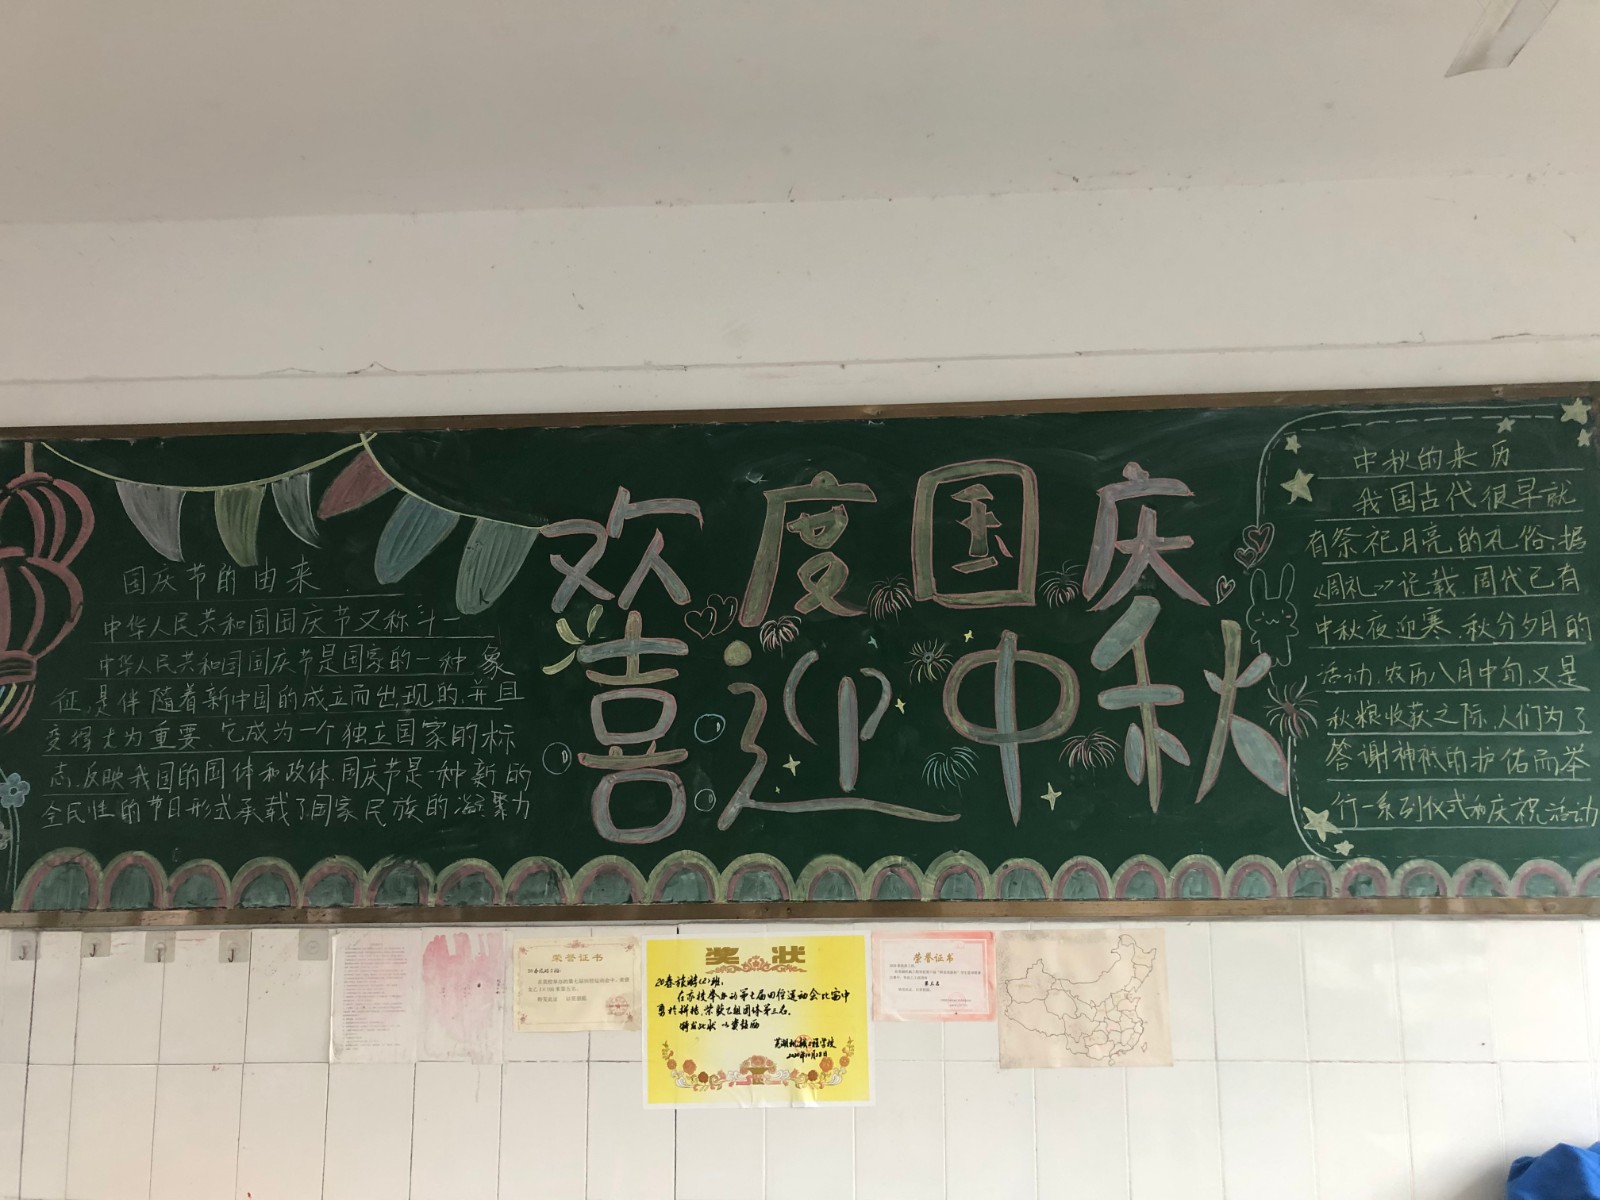 国庆节的由来
中华人民共和国国庆节又称十一
中华人民共和国国庆节是国家的一种象
征,是伴随着新中国的成立而出现的,并且
变得尤为重要、它成为一个独立国家的标
志,反映我国的国体和政体.国庆节是一种新的
全民性的节日形式承载了国家民族的凝聚力
欢度国庆
喜迎中秋
中秋的来历
我国古代很早就
有祭祀月亮的礼俗,据
《周礼》记载.周代已有
中秋夜迎寒、秋分夕月的
活动.农历八月中旬,又是
秋粮收获之际.人们为了
答谢神祇的护佑而举
行一系列仪式和庆祝活动
荣誉证书
奖状
班:
在我校举办的第七届田径运动会比赛中
荣获乙组团体第三名.
特发此状 以资鼓励
2020年10月
荣誉证书
第三名